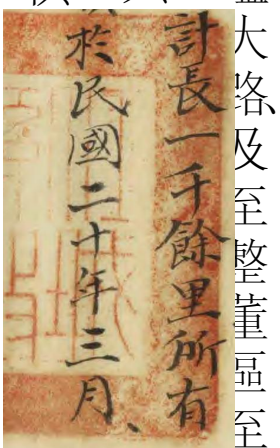 大路、及至整董區至
計長一千餘里所有
於民國二十年三月、